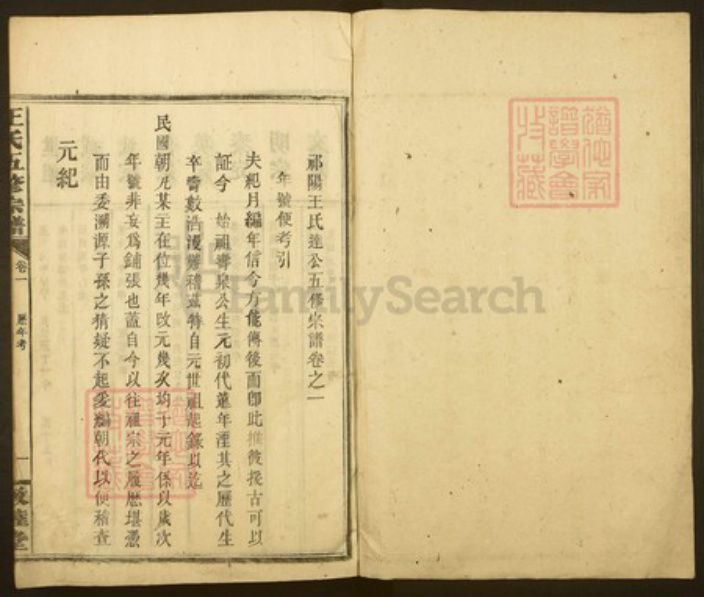 祁陽王氏達公五修宗譜卷之一
年號便考引
夫紀月編年信今方能傳後而卽此推彼援古可以
証今 始祖壽泉公生元初代遠年湮其之歷代生
卒壽數浩漫難稽茲特自元世祖起錄以迄
民國朝凡某主在位幾年改元幾次均于元年係以歲次
年號非妄爲鋪張也蓋自今以往祖宗之履歷堪憑
而由委溯源子孫之猜疑不起爰編朝代以便稽查
元紀
王氏五修宗譜
卷一
歷年考
一
堂
FamilySearch
譜學會
收藏